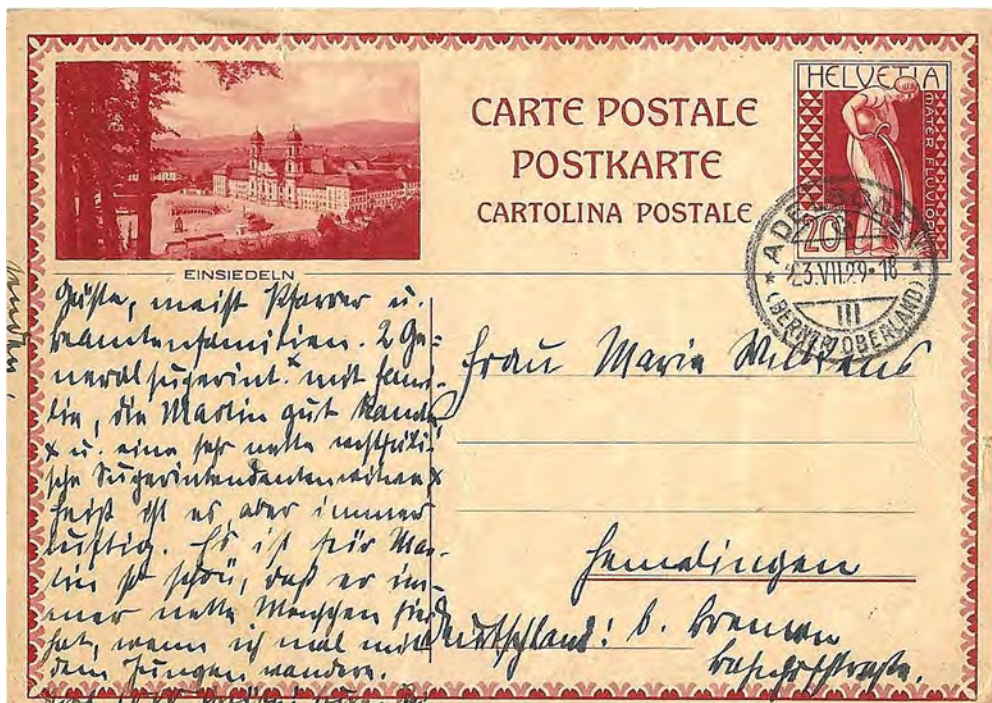 CARTE POSTALE
POSTKARTE
CARTOLINA POSTALE
HELVETIA
MATER FLUVIORUM
20
ADELBODEN
23.VII.29-18
III
(BERNER OBERLAND)
EINSIEDELN
Gäste, meist Pfarrer u.
Beamtenfamilien. 2 Ge=
neralsuperint. mit Fami-
lie, die Martin gut kannte
x u. eine sehr nette westfäli-
sche Superintendentenwitwe x
heiß ist es, aber immer
luftig. Es ist für Mar-
tin so schön, daß er im-
mer nette Menschen hier
hat, wenn ich mal mit
dem Jungen wandere.
Frau Marie Wilkens
Hemelingen
Deutschland! b. Bremen
Bahnhofstraße.